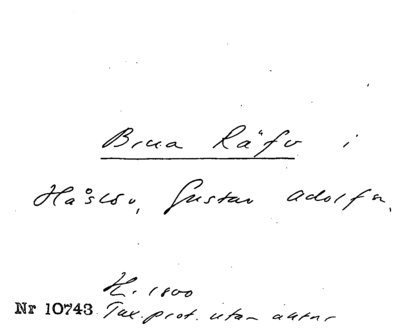 Brua Räfv i
Håslöv, Gustav Adolfs.
H. 1800
Nr 10743 Tax. prot. utan